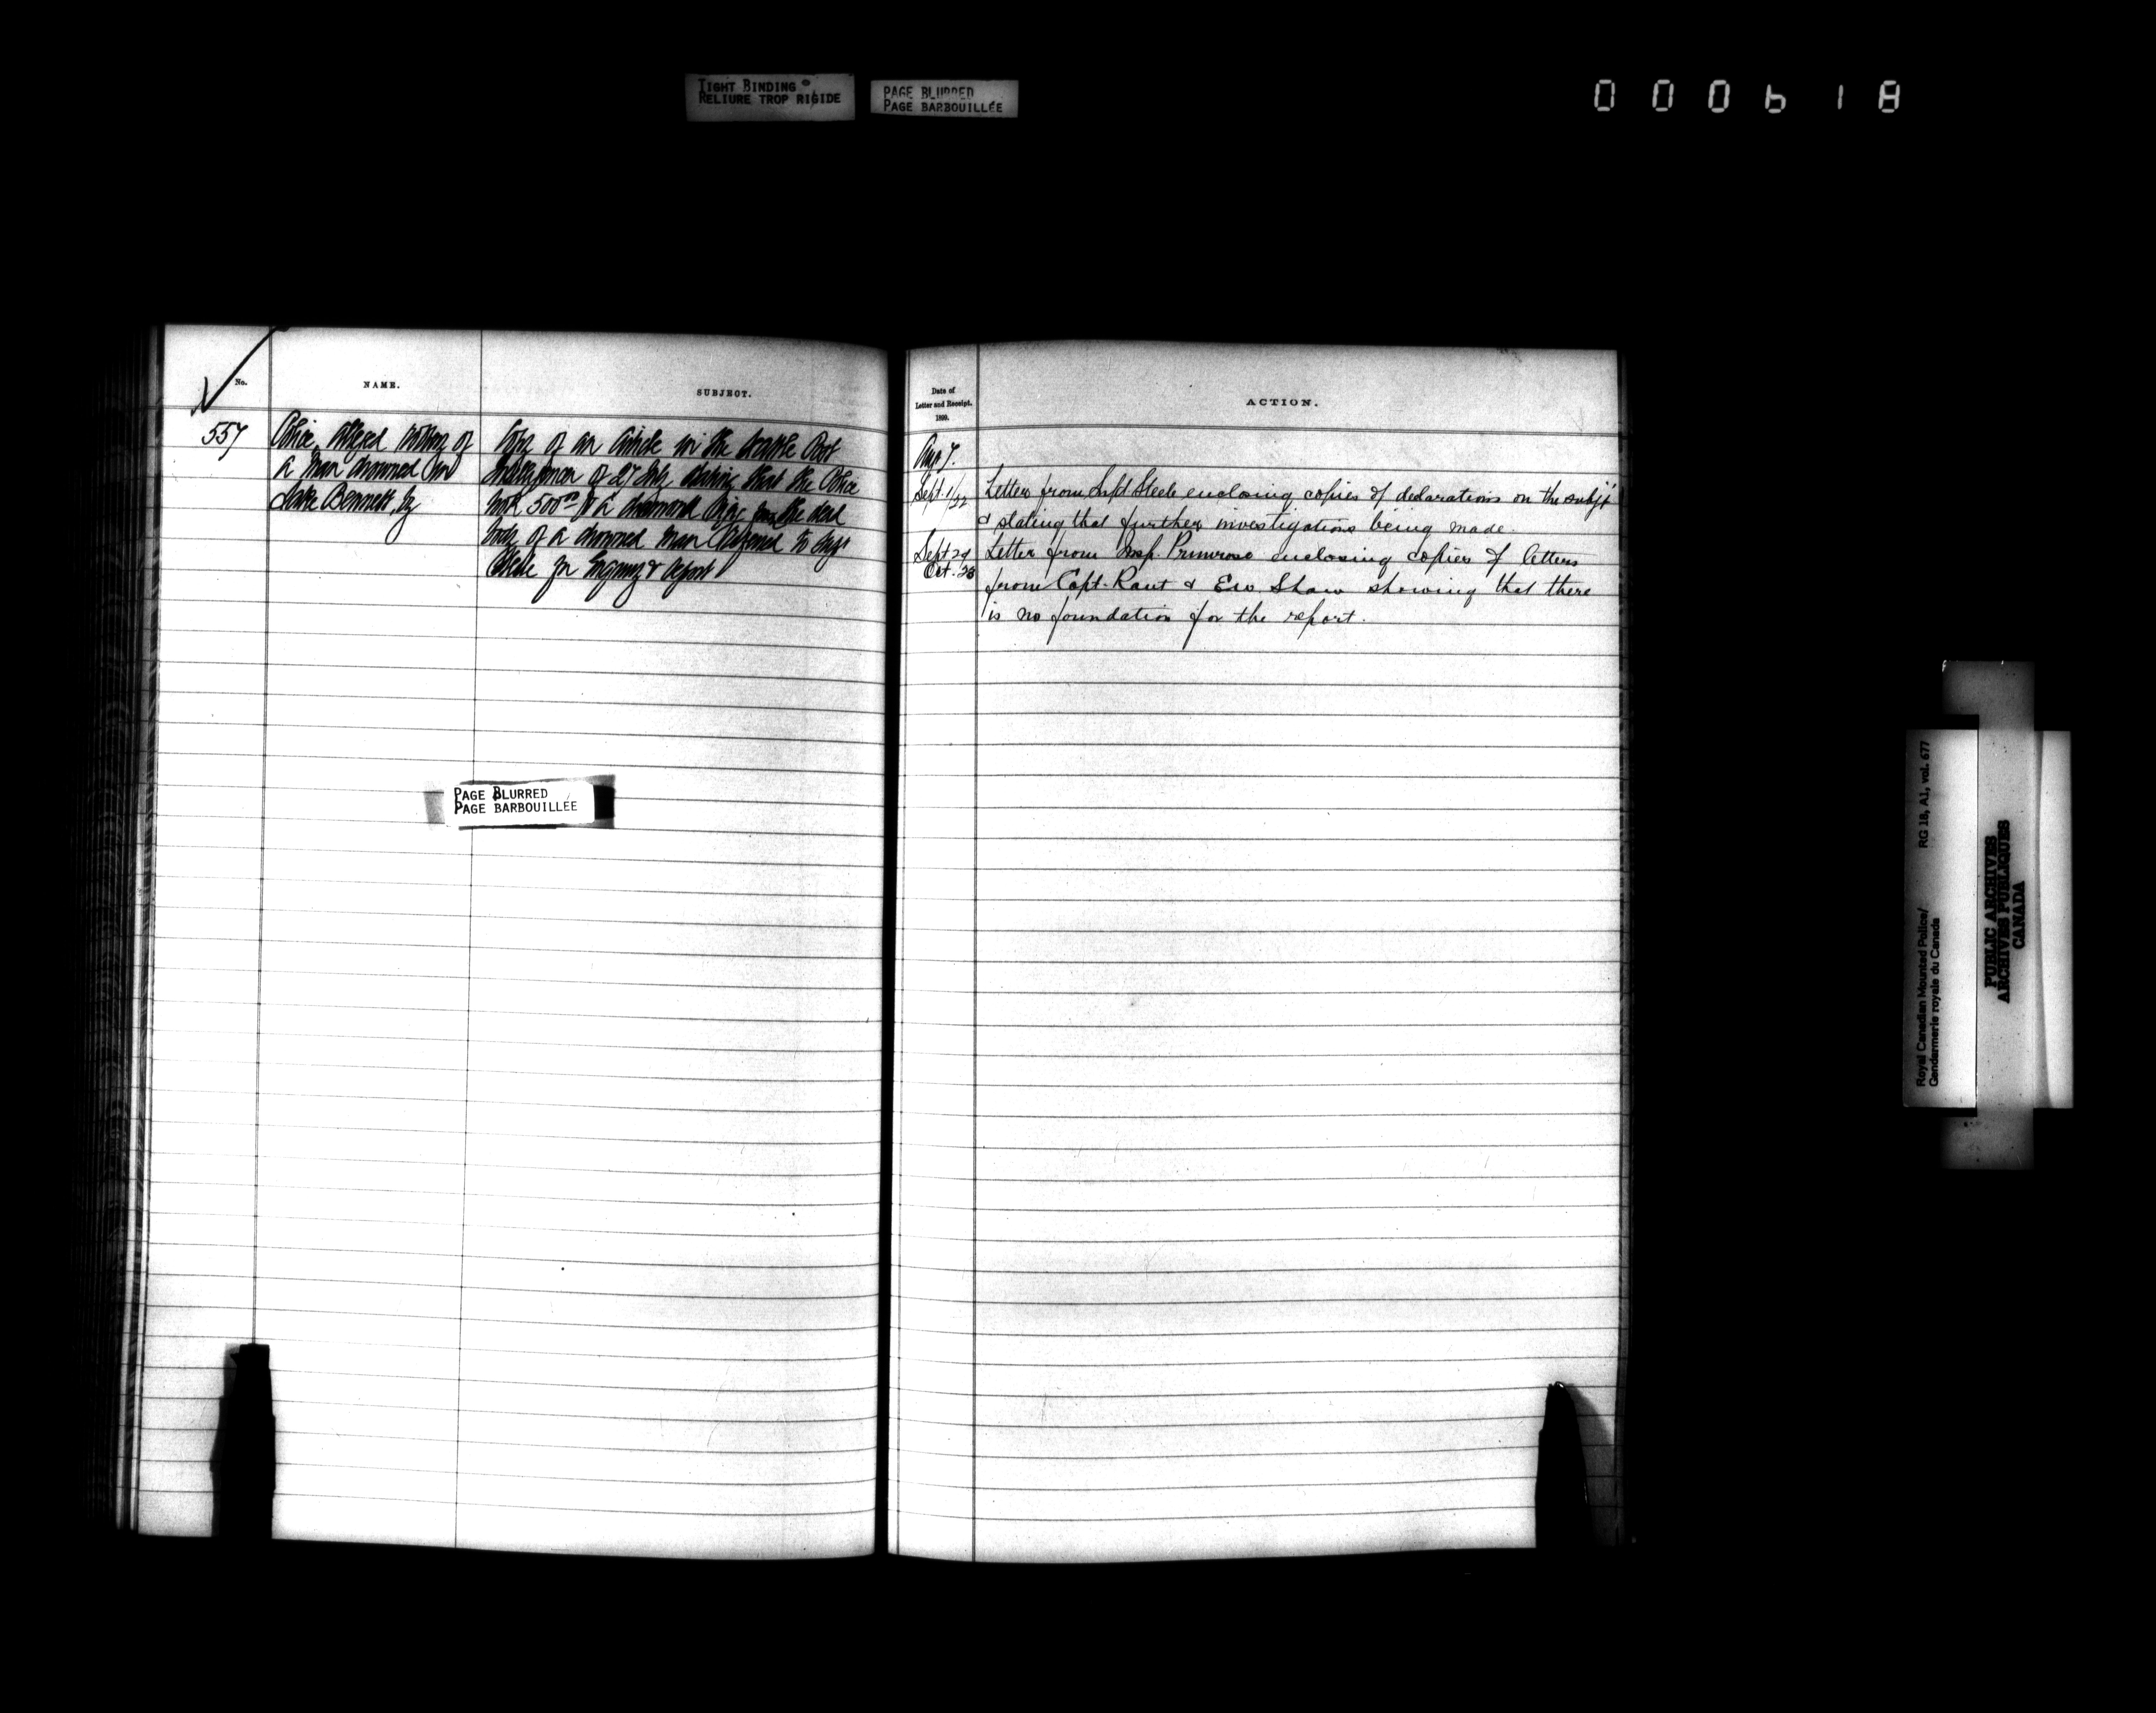 TIGHT BINDING
RELIURE TROP RIGIDE
PAGE BLURRED
PAGE BARBOUILLÉE
000618
No.
NAME.
SUBJECT.
557
Police, alleged robbery of
a man drowned in
Lake Bennett, by
Copy of an Article in the Seattle Post
Intelligencer of 27 July stating that the Police
took 500.00 & a diamond ring from the dead
body of a drowned man Referred to Supt
Steele for Enquiry & report
PAGE BLURRED
PAGE BARBOUILLÉE
Date of
Letter and Receipt.
1899.
ACTION.
Aug 7.
Sept. 1/22 Letter from Supt Steele enclosing copies of declarations on the subjt
& stating that further investigations being made.
Sept 29 Letter from Insp. Primrose enclosing copies of letters
Oct. 23 from Capt. Rant & Ew. Shaw showing that there
is no foundation for the report.
Royal Canadian Mounted Police/
Gendarmerie royale du Canada
RG 18, A1, vol. 677
PUBLIC ARCHIVES
ARCHIVES PUBLIQUES
CANADA